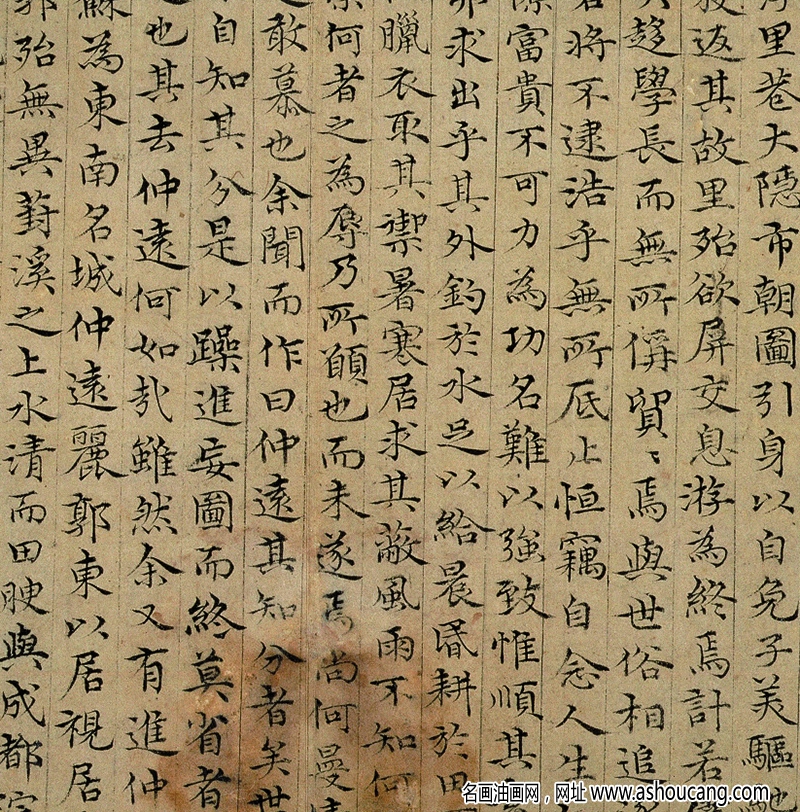 里巷大隱市朝圖引身以自免子美驅馳
返其故里殆欲屏交息游為終焉計若
趨學長而無所儔貿〻焉與世俗相追
將不逮浩乎無所底止恒竊自念人生
富貴不可力為功名難以強致惟順其
求出乎其外釣於水足以給晨昏耕於田
臘衣取其禦暑寒居求其蔽風雨不知何
何者之為辱乃所願也而未遂焉尚何曼
敢慕也余聞而作曰仲遠其知分者矣世
自知其分是以躁進妄圖而終莫省者
也其去仲遠何如哉雖然余又有進仲
蘇為東南名城仲遠麗郭東以居視居
郭殆無異葑溪之上水清而田腴與成都
名画油画网，网址 www.ashoucang.com